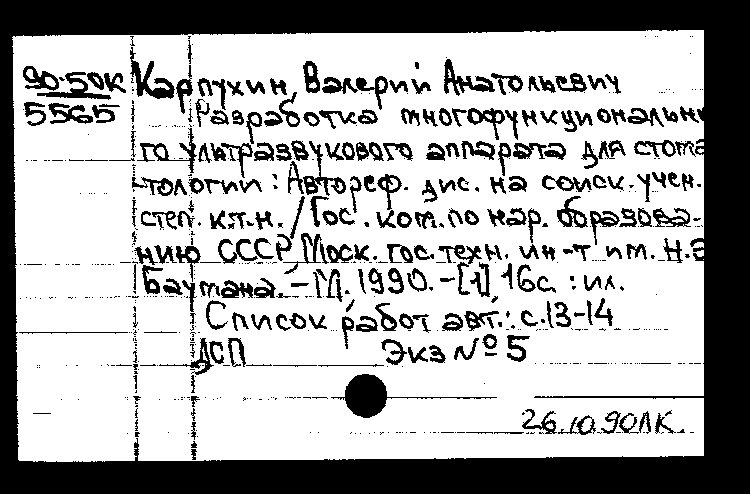 90-50К Карпухин, Валерий Анатольевич
5565 Разработка многофункциональны
го ультразвукового аппарата для стома
-тологии : Автореф. дис. на соиск. учен.
степ. к.т.н. / Гос. ком. по нар. образова-
нию СССР Моск. гос. техн. ин-т им. Н.Э
Баумана. - М. 1990. - [1] 16с. : ил.
Список работ авт.: с.13-14
ДСП Экз № 5
26.10.90ЛК.